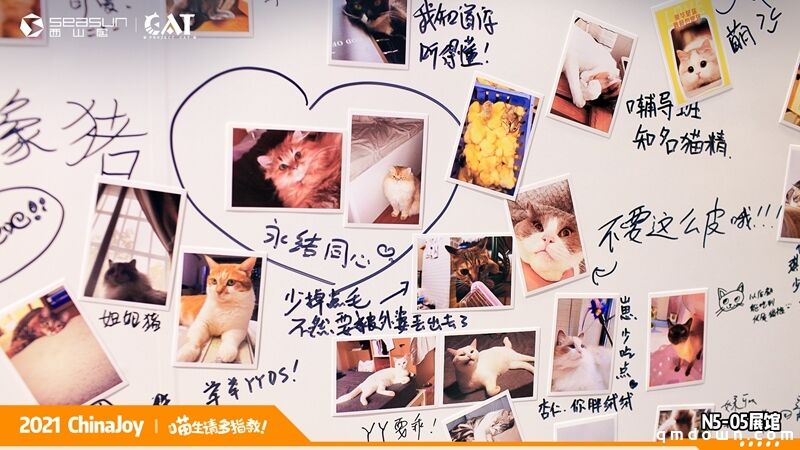 seasun
西山居
CAT
PROJECT:CAT
我知道你
听得懂!
萌
像猪
哺辅导班
知名猫精
不要这么皮哦!!!
永结同心
少掉点毛
不然要被外婆丢出去了
姐姐猪
崽
少吃
点
YYDS!
YY要乖!
杏仁·你胖绒绒
2021 ChinaJoy
喵生请多指教!
N5-05展馆
qmdown.com